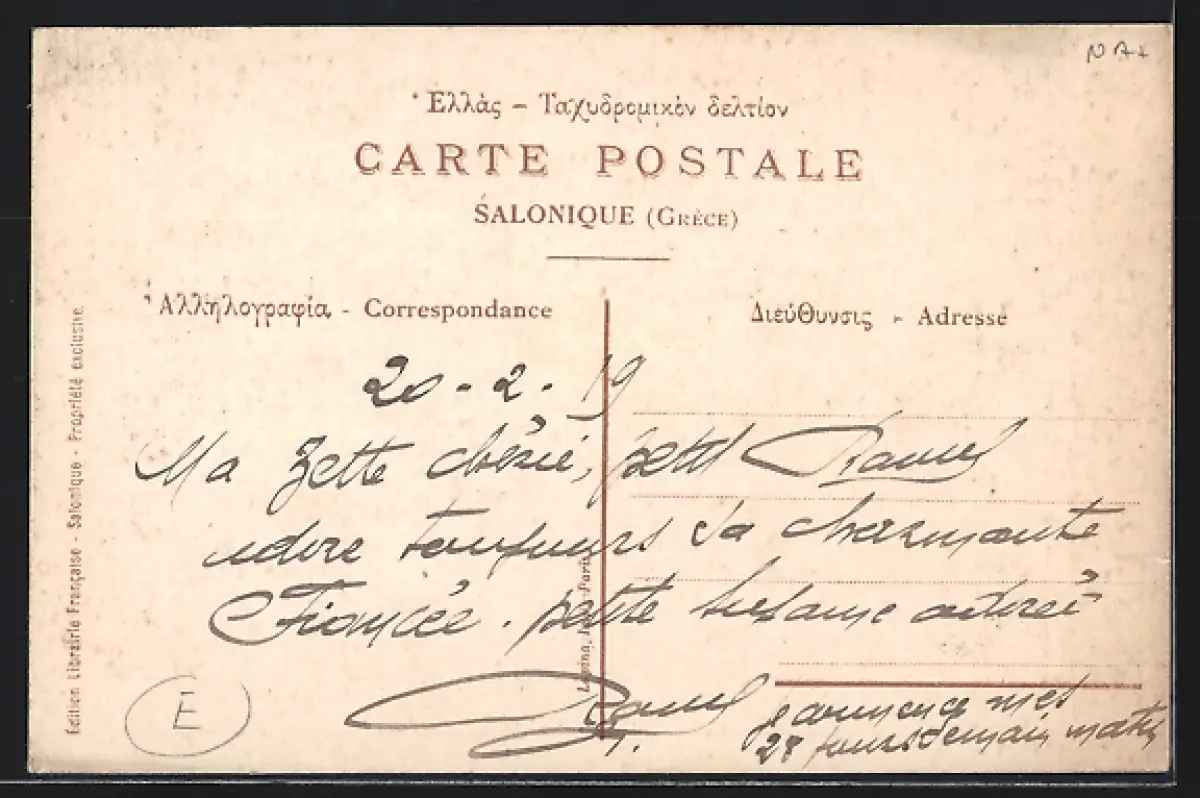 Ἑλλὰς – Ταχυδρομικὸν δελτίον
CARTE POSTALE
SALONIQUE (GRÈCE)
Ἀλληλογραφία - Correspondance
Διεύθυνσις - Adresse
Édition Librairie Française - Salonique - Propriété exclusive.
20 - 2 - 19
Ma Zette chérie, petit
adore toujours sa charmante
Fiancée. petite adorée
Paris
je commence mes
28 jours demain matin
E